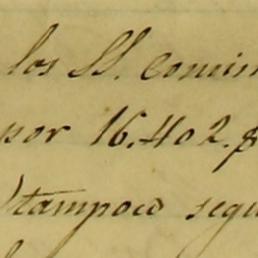 los SS. comi
por 16.402.$
tampoco segu